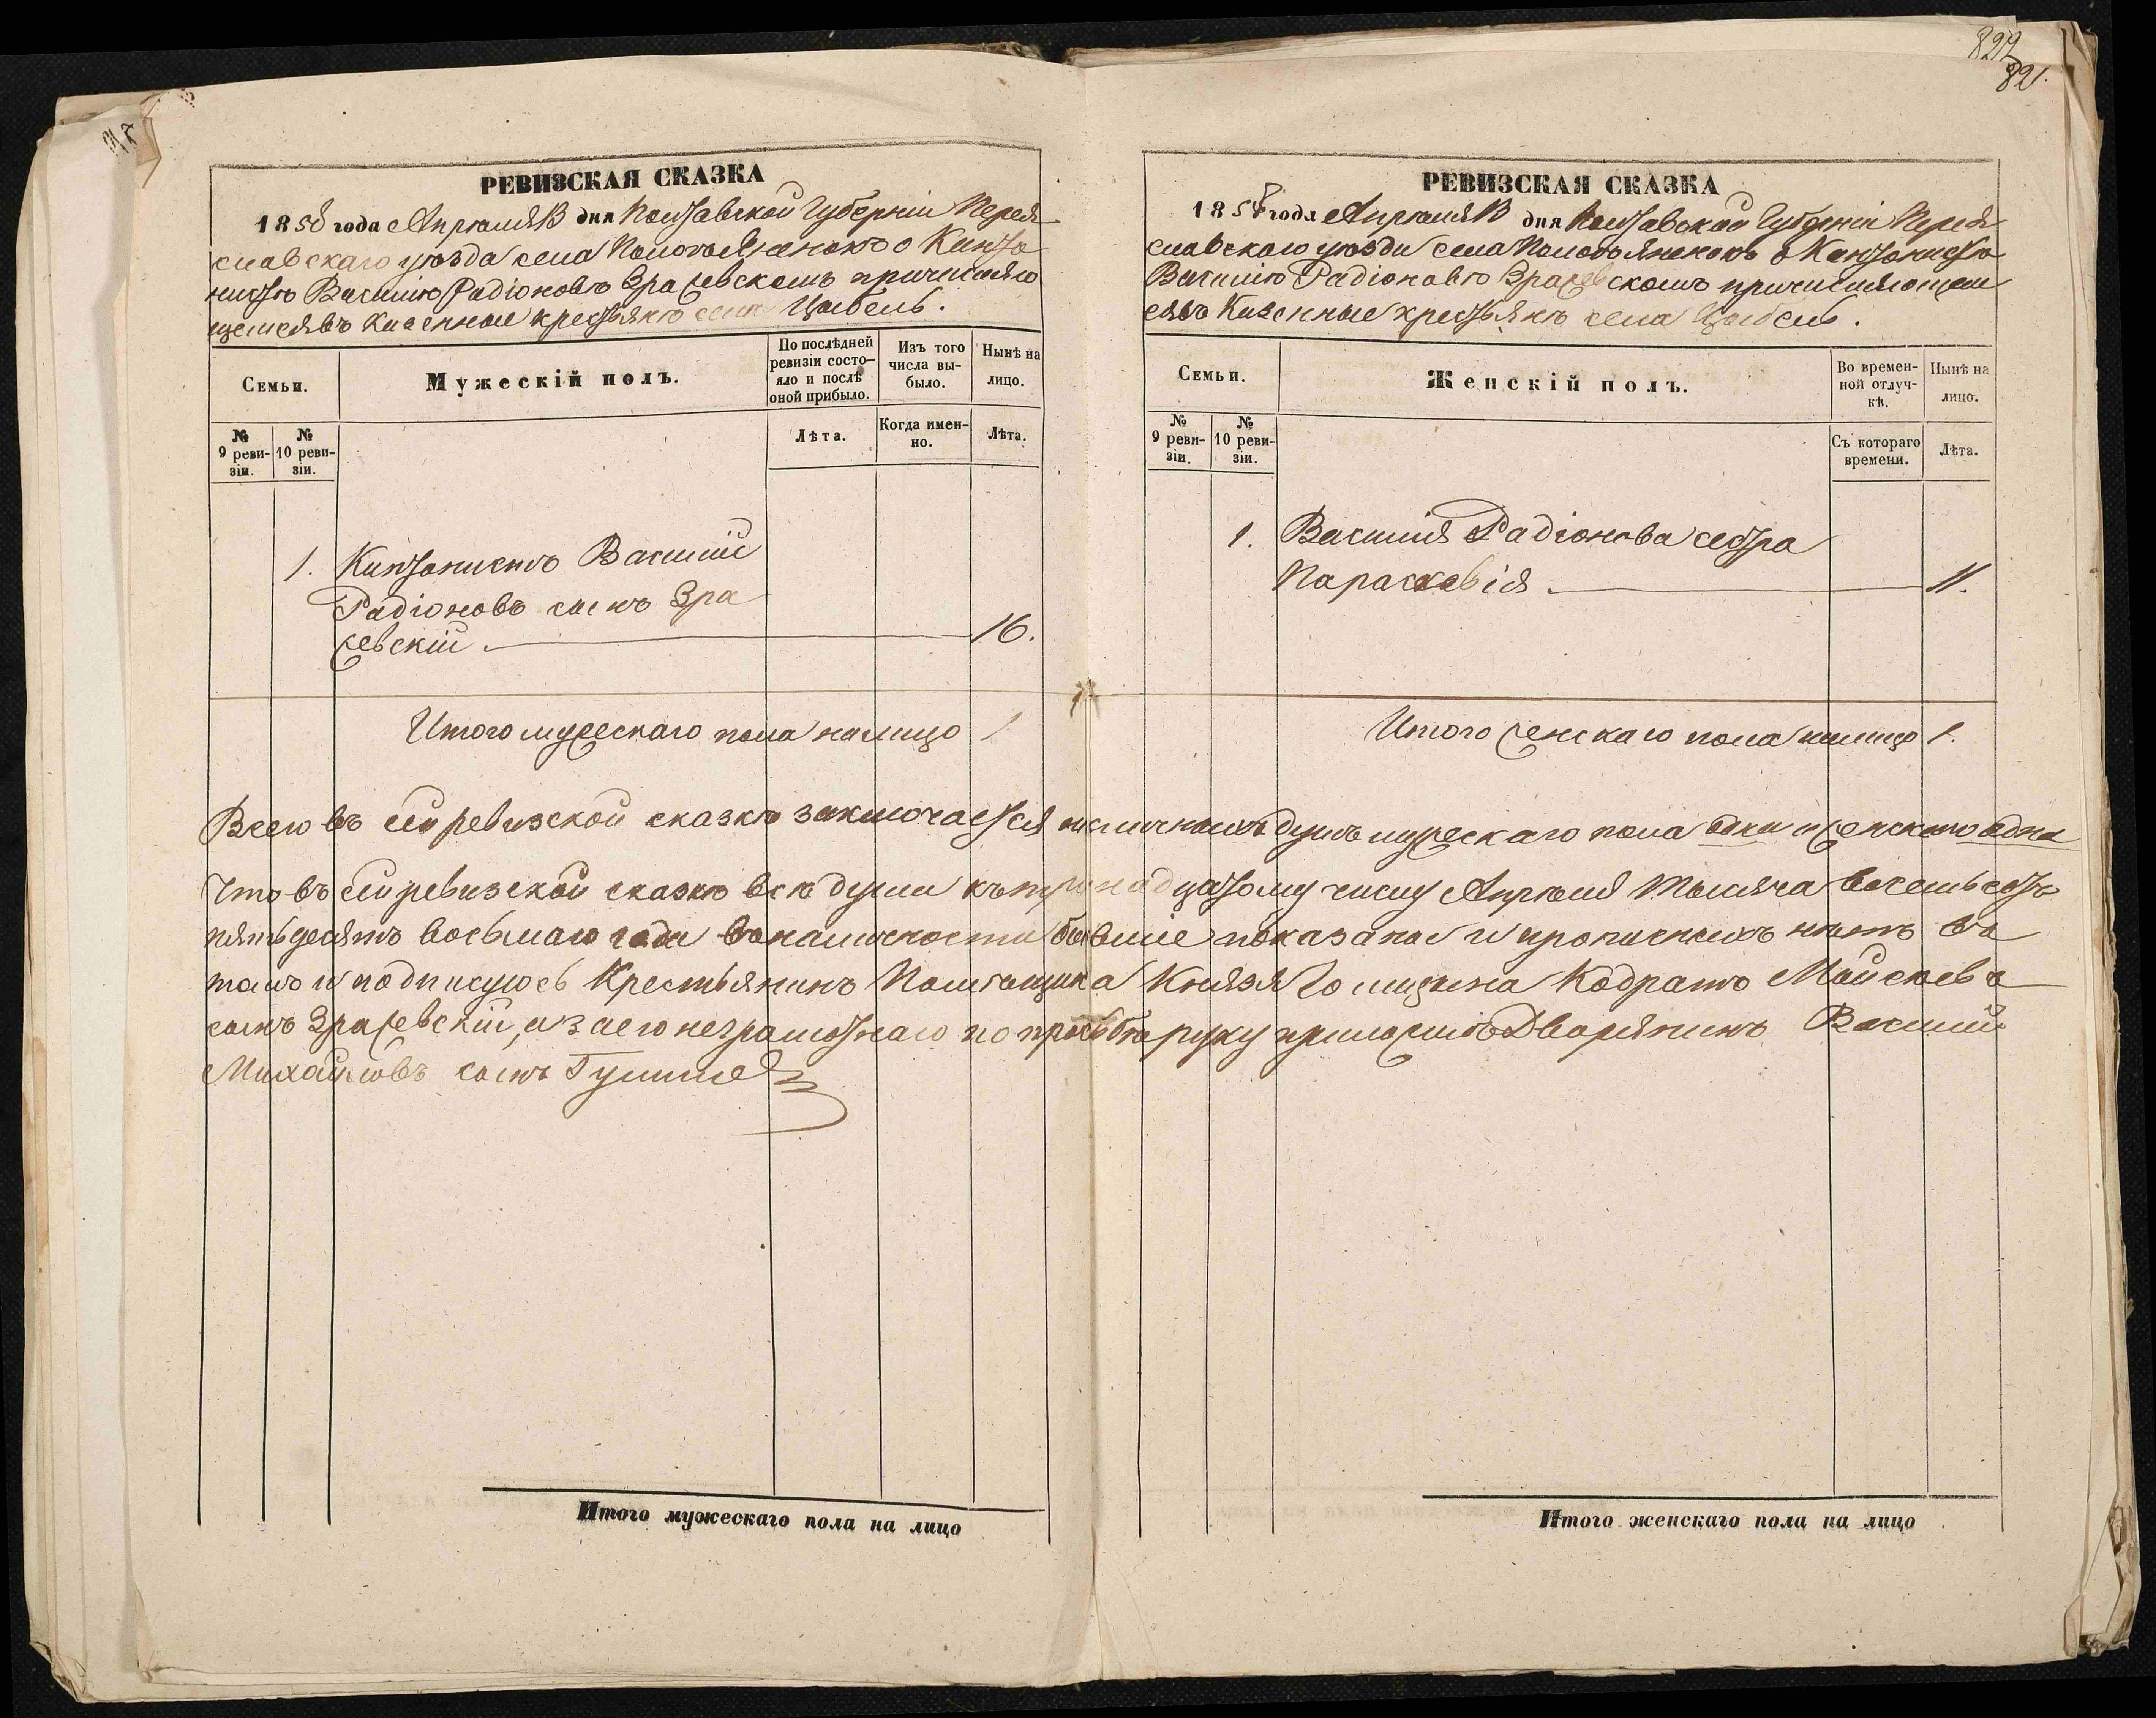 822
821.
РЕВИЗСКАЯ СКАЗКА
1858 года Апрѣля 13 дня Полтавской Губерніи Перея
славскаго уѣзда села Пологъ Яненокъ о Канто
нистѣ Василію Радіоновѣ Зражевскомъ причисляю
щемся въ Казенные крестьяне села Цыбель.
Семьи.
Мужескій полъ.
По послѣдней ревизіи состо-
яло и послѣ оной прибыло.
Изъ того числа вы-
было.
Нынѣ на лицо.
№ 9 реви-
зіи.
№ 10 реви-
зіи.
Лѣта.
Когда имен-
но.
Лѣта.
1. Кантонистъ Василій
Радіоновъ сынъ Зра
жевскій 16.
Итого мужескаго пола налицо 1
РЕВИЗСКАЯ СКАЗКА
1858 года Апрѣля 13 дня Полтавской Губерніи Перея
славскаго уѣзда села Пологъ Яненокъ о Кантонистѣ
Василію Радіоновѣ Зражевскомъ причисляющем
ся въ Казенные крестьяне села Цыбель.
Семьи.
Женскій полъ.
Во времен-
ной отлуч-
кѣ.
Нынѣ на лицо.
№ 9 реви-
зіи.
№ 10 реви-
зіи.
Съ котораго времени.
Лѣта.
1. Василія Радіонова сестра
Параскевія 11.
Итого женскаго пола налицо 1.
Всего въ сей ревизской сказкѣ заключается наличныхъ душъ мужескаго пола одна и женскаго одна
Что въ сей ревизской сказкѣ всѣ души къ тринадцатому числу Апрѣля тысяча восемьсотъ
пятьдесятъ восьмаго года въ наличности бывшіе показаны и прописныхъ нѣтъ въ
томъ и подписуюсь Крестьянинъ Помѣщика Князя Голицына Кодратъ Мойсѣевъ
сынъ Зражевскій, а за его неграмотнаго по прозьбѣ руку приложилъ Дворянинъ Василій
Михайловъ сынъ
Итого мужескаго пола на лицо
Итого женскаго пола на лицо